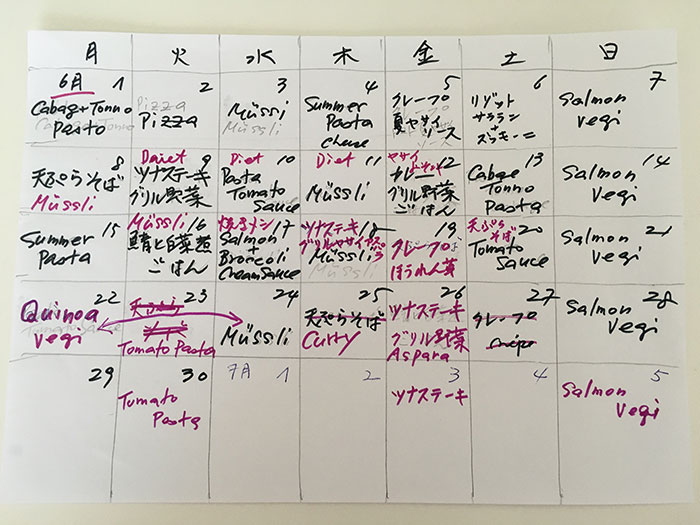 月 火 水 木 金 土 日
6月 1
Cabage Tonno
Pasta
2
Pizza
Pizza
3
Müssli
Müssli
4
Summer
Pasta
cheese
5
クレープ
夏ヤサイ
ソース
6
リゾット
サフラン
+
ズッキーニ
7
Salmon
vegi
8
天ぷらそば
Müssli
Daiet 9
ツナステーキ
グリル野菜
Diet 10
Pasta
Tomato
Sauce
Diet 11
Müssli
ヤサイ
12
カレー
グリル野菜
ごはん
13
Cabage
Tonno
Pasta
14
Salmon
vegi
15
Summer
Pasta
Müssli 16
鯖と白菜煮
ごはん
焼きメシ 17
Salmon
+
Broccoli
Cream Sauce
ツナステーキ 18
グリルヤサイ
Müssli
Müssli
19
クレープ
ほうれん草
天ぷらそば 20
Tomato
Sauce
21
Salmon
vegi
22
Quinoa
vegi
23
天ぷら
Tomato Pasta
24
Müssli
25
天ぷらそば
Curry
26
ツナステーキ
グリル野菜
Aspara
27
クレープ
28
Salmon
vegi
29
30
Tomato
Pasta
7月 1
2
3
ツナステーキ
4
5
Salmon
vegi